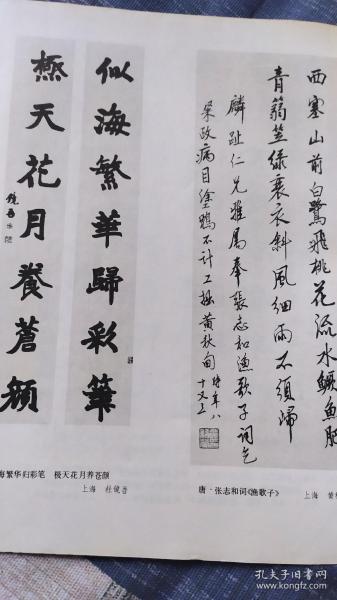 西塞山前白鹭飛桃花流水鱖魚肥
青箬笠綠蓑衣斜風細雨不須歸
麟趾仁兄雅属奉張志和漁歌子词乞
政病目塗鴉不计工拙黄秋甸
時年八
十又三
似海繁華歸彩筆
極天花月養蒼顔
鏡吾
海繁华归彩笔 极天花月养苍颜
上海 杜镜吾
唐·张志和词《渔歌子》
上海 黄
孔夫子旧书网